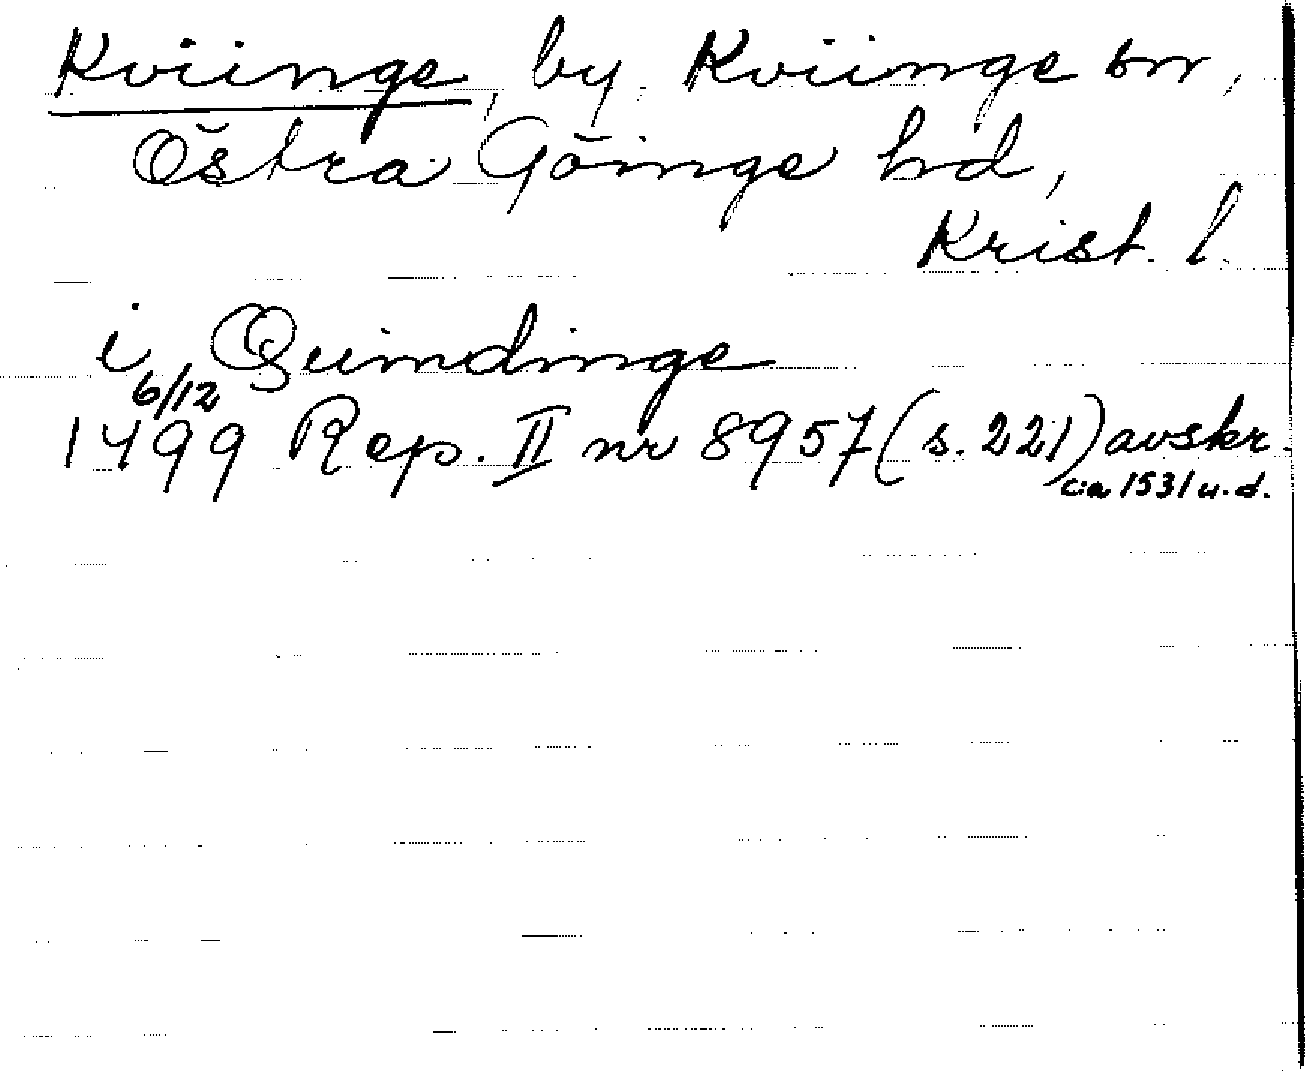 Kviinge, by, Kviinge sn,
Östra Göinge hd,
Krist. l.
i Quindinge
6/12
1499 Rep. II nr 8957 (s. 221) avskr.
ca 1531 u.d.